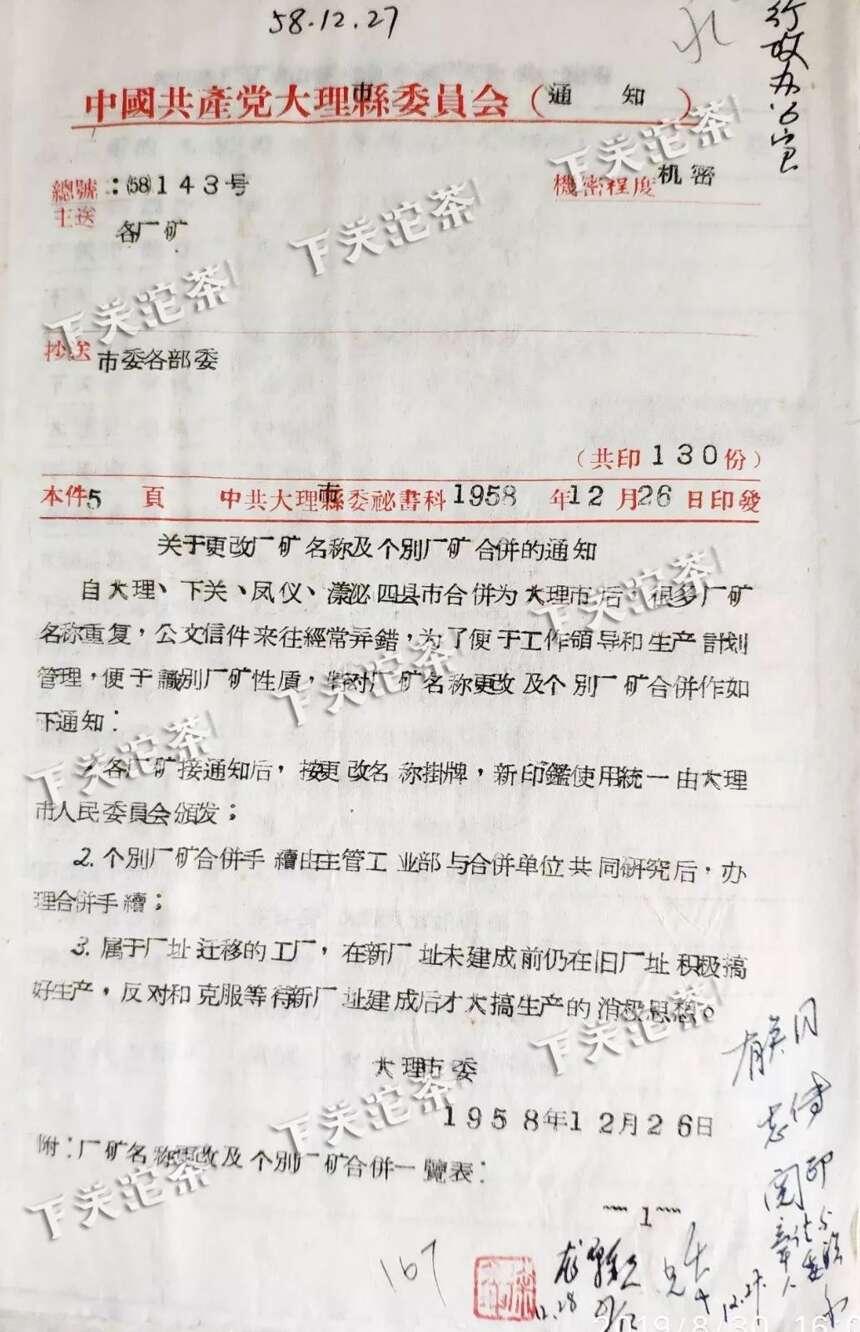 58.12.27
行政办公室
中國共產党大理縣委員会（通 知）
市
總號：(58)143号
機密程度 机密
主送 各厂矿
抄送 市委各部委
（共印130份）
本件5頁 中共大理縣委祕書科1958年12月26日印發
市
关于更改厂矿名称及个別厂矿合併的通知
自大理、下关、凤仪、漾濞四县市合併为大理市后，很多厂矿
名称重复，公文信件来往經常弄錯，为了便于工作領导和生产計划
管理，便于識別厂矿性质，对厂矿名称更改及个別厂矿合併作如
下通知：
各厂矿接通知后，按更改名称掛牌，新印鑑使用統一由大理
市人民委員会頒发；
2.个別厂矿合併手續由主管工业部与合併单位共同研究后，办
理合併手續；
3.属于厂址迁移的工厂，在新厂址未建成前仍在旧厂址积极搞
好生产，反对和克服等待新厂址建成后才大搞生产的消极思想。
大理市委
1958年12月26日
附：厂矿名称更改及个別厂矿合併一覽表：
1
167
12.28
12.27
下关沱茶
下关沱茶
下关沱茶
下关沱茶
下关沱茶
下关沱茶
下关沱茶
下关沱茶
下关沱茶
2019/8/30